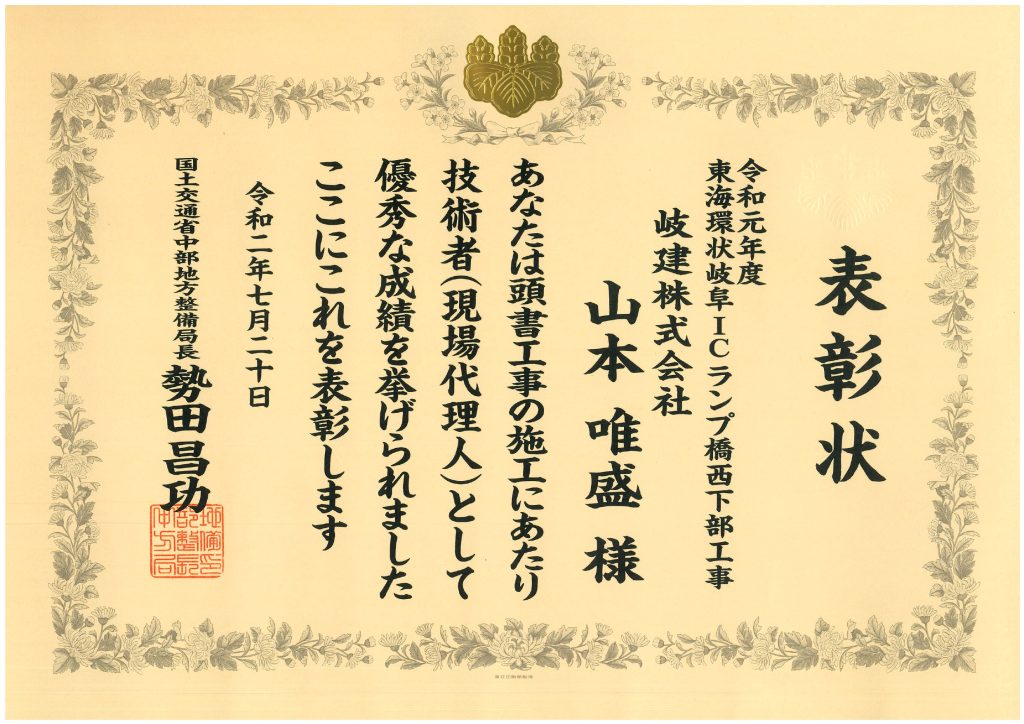 表彰状
令和元年度
東海環状岐阜ICランプ橋西下部工事
岐建株式会社
山本 唯盛 様
あなたは頭書工事の施工にあたり
技術者(現場代理人)として
優秀な成績を挙げられました
ここにこれを表彰します
令和二年七月二十日
国土交通省中部地方整備局長 勢田昌功